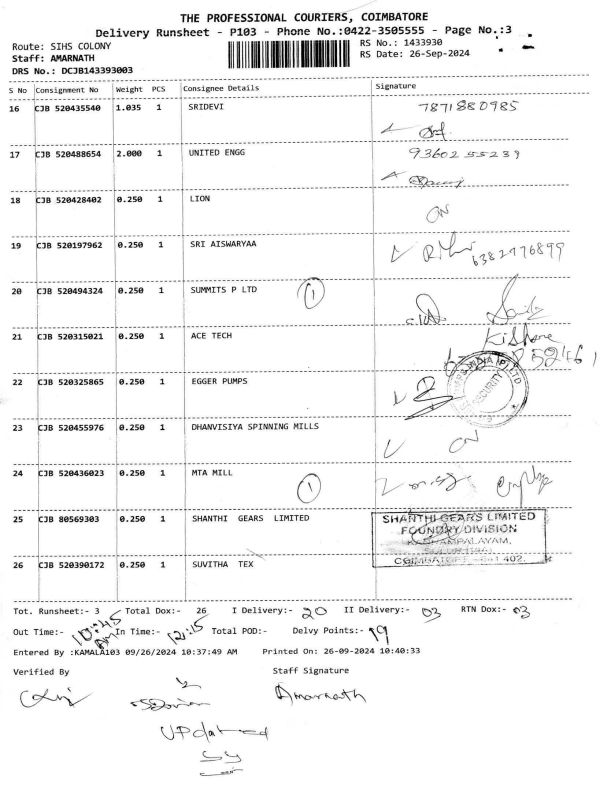 THE PROFESSIONAL COURIERS, COIMBATORE
Delivery Runsheet - P103 - Phone No.:0422-3505555 - Page No.:3
Route: SIHS COLONY
RS No.: 1433930
Staff: AMARNATH
RS Date: 26-Sep-2024
DRS No.: DCJB143393003
S No Consignment No Weight PCS Consignee Details Signature
16 CJB 520435540 1.035 1 SRIDEVI 7871880985
17 CJB 520488654 2.000 1 UNITED ENGG 9360255239
18 CJB 520428402 0.250 1 LION ON
19 CJB 520197962 0.250 1 SRI AISWARYAA 6382976899
20 CJB 520494324 0.250 1 SUMMITS P LTD 1
21 CJB 520315021 0.250 1 ACE TECH Kishore
22 CJB 520325865 0.250 1 EGGER PUMPS INDIA (P) LTD SECURITY
23 CJB 520455976 0.250 1 DHANVISIYA SPINNING MILLS ON
24 CJB 520436023 0.250 1 MTA MILL 1
25 CJB 80569303 0.250 1 SHANTHI GEARS LIMITED
SHANTHI GEARS LIMITED
FOUNDRY DIVISION
26 CJB 520390172 0.250 1 SUVITHA TEX
Tot. Runsheet:- 3 Total Dox:- 26 I Delivery:- 20 II Delivery:- 03 RTN Dox:- 03
Out Time:- 10:45 AM In Time:- 12:15 Total POD:- Delvy Points:- 19
Entered By :KAMALA103 09/26/2024 10:37:49 AM Printed On: 26-09-2024 10:40:33
Verified By Staff Signature
Amarnath
UPdated